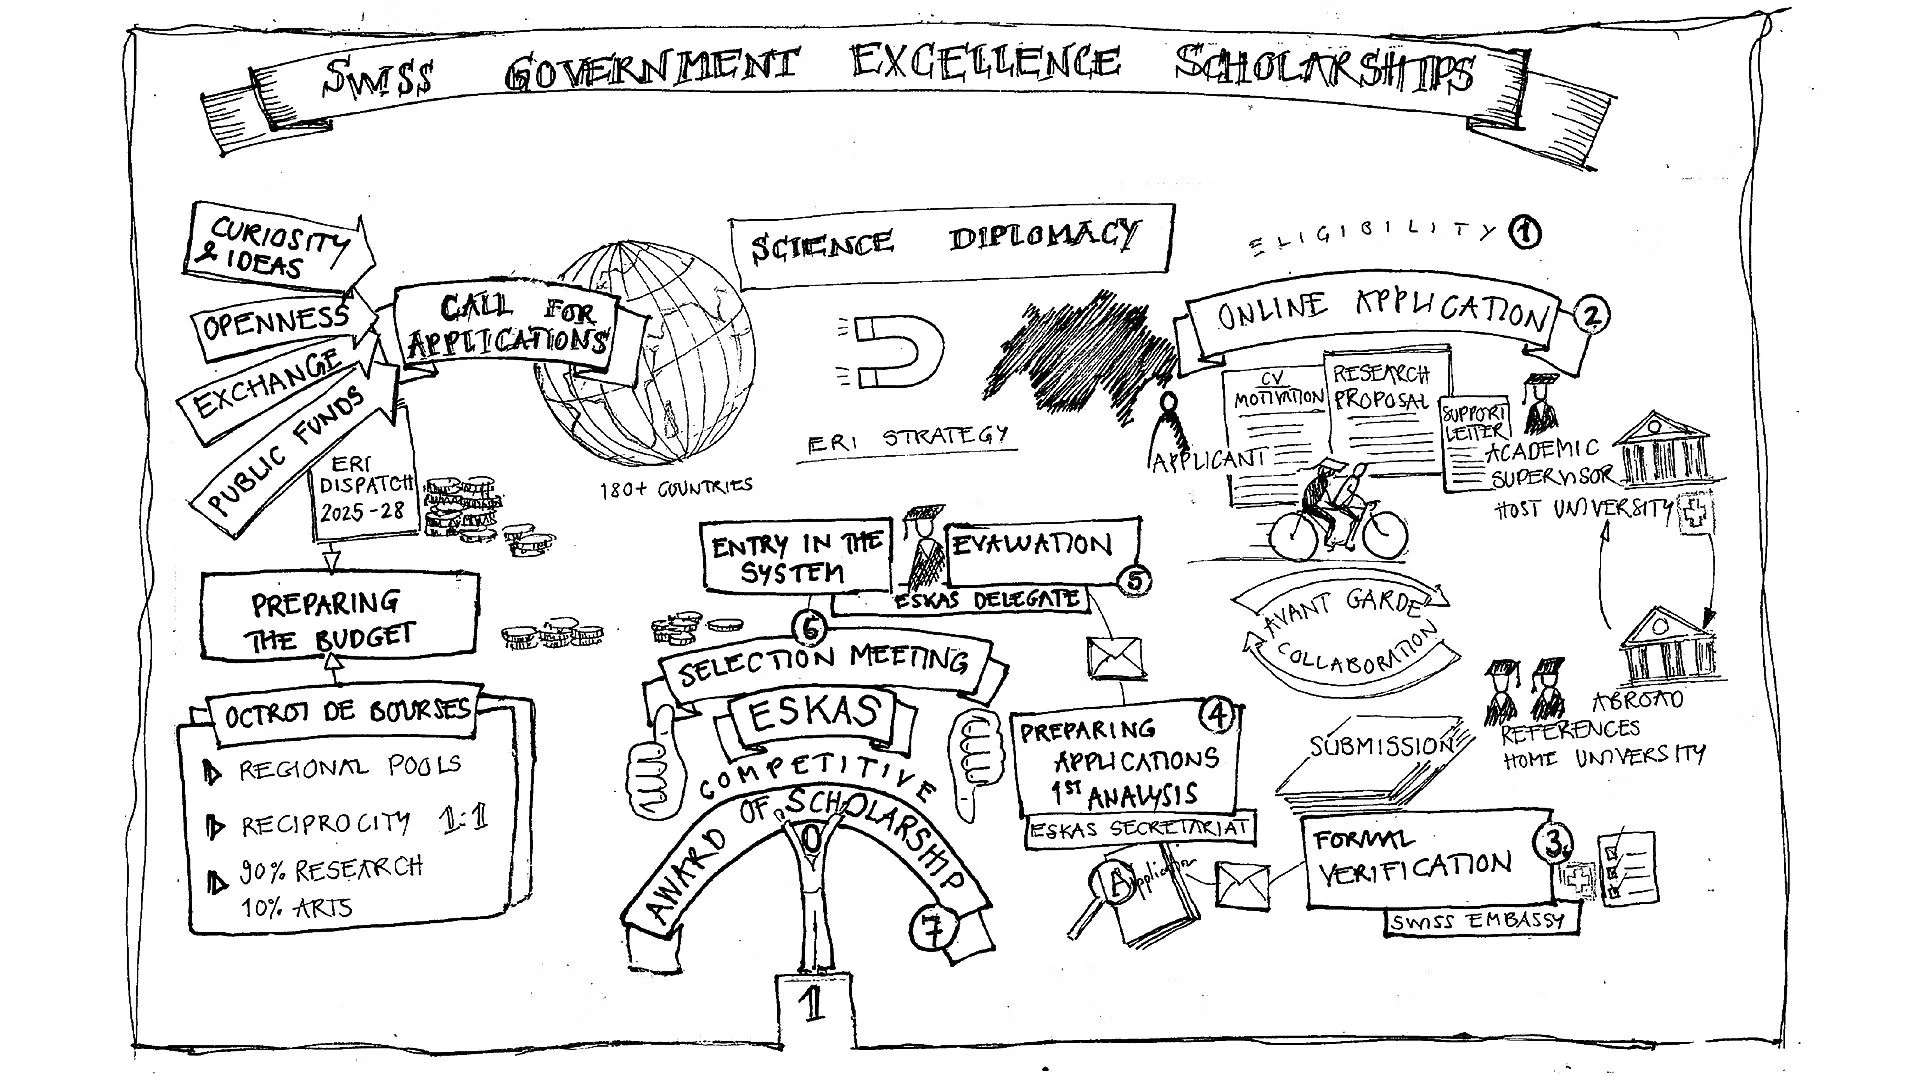 SWISS GOVERNMENT EXCELLENCE SCHOLARSHIPS
CURIOSITY
& IDEAS
OPENNESS
EXCHANGE
PUBLIC FUNDS
CALL FOR
APPLICATIONS
180+ COUNTRIES
SCIENCE DIPLOMACY
ERI STRATEGY
ERI
DISPATCH
2025-28
PREPARING
THE BUDGET
OCTROI DE BOURSES
REGIONAL POOLS
RECIPROCITY 1:1
90% RESEARCH
10% ARTS
ELIGIBILITY 1
ONLINE APPLICATION 2
CV
MOTIVATION
RESEARCH
PROPOSAL
SUPPORT
LETTER
APPLICANT
ACADEMIC
SUPERVISOR
HOST UNIVERSITY
AVANT GARDE
COLLABORATION
ABROAD
REFERENCES
HOME UNIVERSITY
SUBMISSION
FORMAL
VERIFICATION
3
SWISS EMBASSY
PREPARING
APPLICATIONS
1ST ANALYSIS
4
ESKAS SECRETARIAT
Application
EVALUATION
5
ESKAS DELEGATE
ENTRY IN THE
SYSTEM
6
SELECTION MEETING
ESKAS
COMPETITIVE
AWARD OF SCHOLARSHIP
7
1